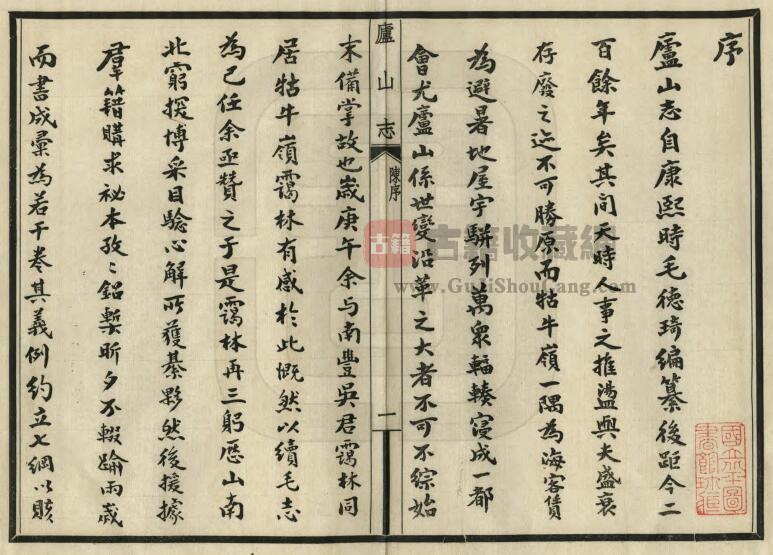 序
廬山志自康熙時毛德琦編纂後距今二
百餘年矣其间天時人事之推盪與夫盛衰
存廢之迹不可勝原而牯牛嶺一隅為海客賃
為避暑地屋宇駢列萬衆輻輳寖成一都
會尤廬山係世變沿革之大者不可不綜始
廬山志
陳序
一
末備掌故也嵗庚午余与南豐吳君靄林同
居牯牛嶺靄林有感於此慨然以續毛志
為己任余亟贊之于是靄林再三躬歷山南
北窮探博采目驗心解所獲綦夥然後援據
羣籍購求祕本孜〻鉛槧昕夕不輟踰兩嵗
而書成彙為若干卷其義例約立七綱以賅
古籍
古籍收藏網
www.GujiShouCang.com